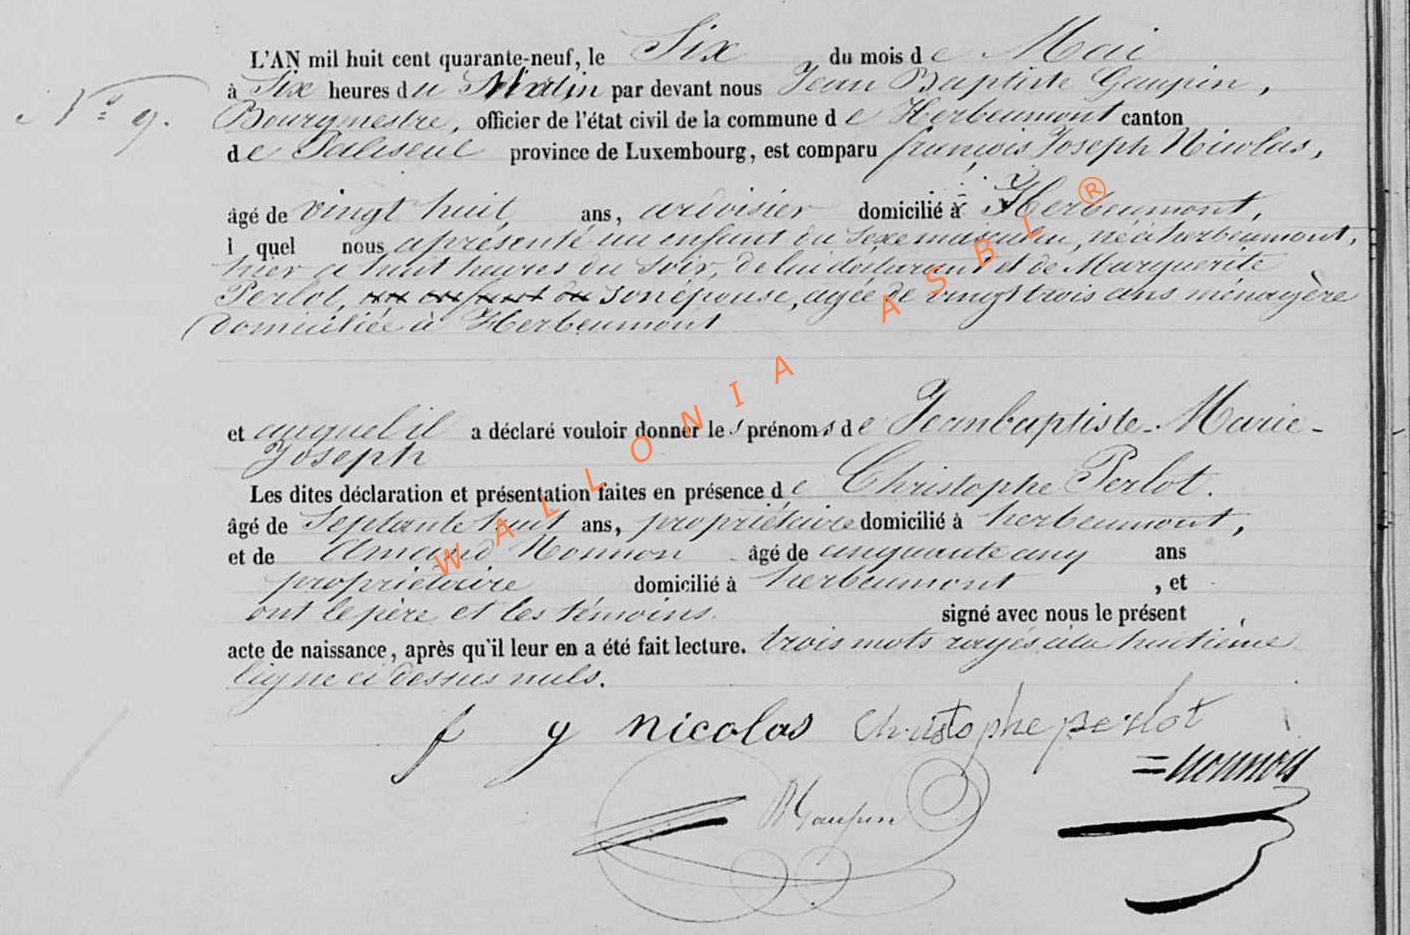 L'AN mil huit cent quarante-neuf, le Six du mois de Mai
N° 9. à Six heures du Matin par devant nous Jean Baptiste Gaupin,
Bourgmestre, officier de l'état civil de la commune de Herbeumont canton
de Paliseul province de Luxembourg, est comparu françois Joseph Nicolas,
âgé de vingt huit ans, ardoisier domicilié à Herbeumont,
l quel nous a présenté un enfant du sexe masculin, né à herbeumont,
hier à huit heures du soir, de lui déclarant et de Marguerite
Perlot, son épouse, agée de vingt trois ans ménagère
domiciliée à Herbeumont
et auquel il a déclaré vouloir donner les prénoms de Jean baptiste-Marie-
Joseph
Les dites déclaration et présentation faites en présence de Christophe Perlot.
âgé de Septante huit ans, propriétaire domicilié à herbeumont,
et de Amand Nonnon âgé de cinquante cinq ans
propriétaire domicilié à herbeumont, et
ont le père et les témoins signé avec nous le présent
acte de naissance, après qu'il leur en a été fait lecture. trois mots rayés à la huitième
ligne ci dessus nuls.
f y nicolas Christophe perlot
nonnon
WALLONIA ASBL ®